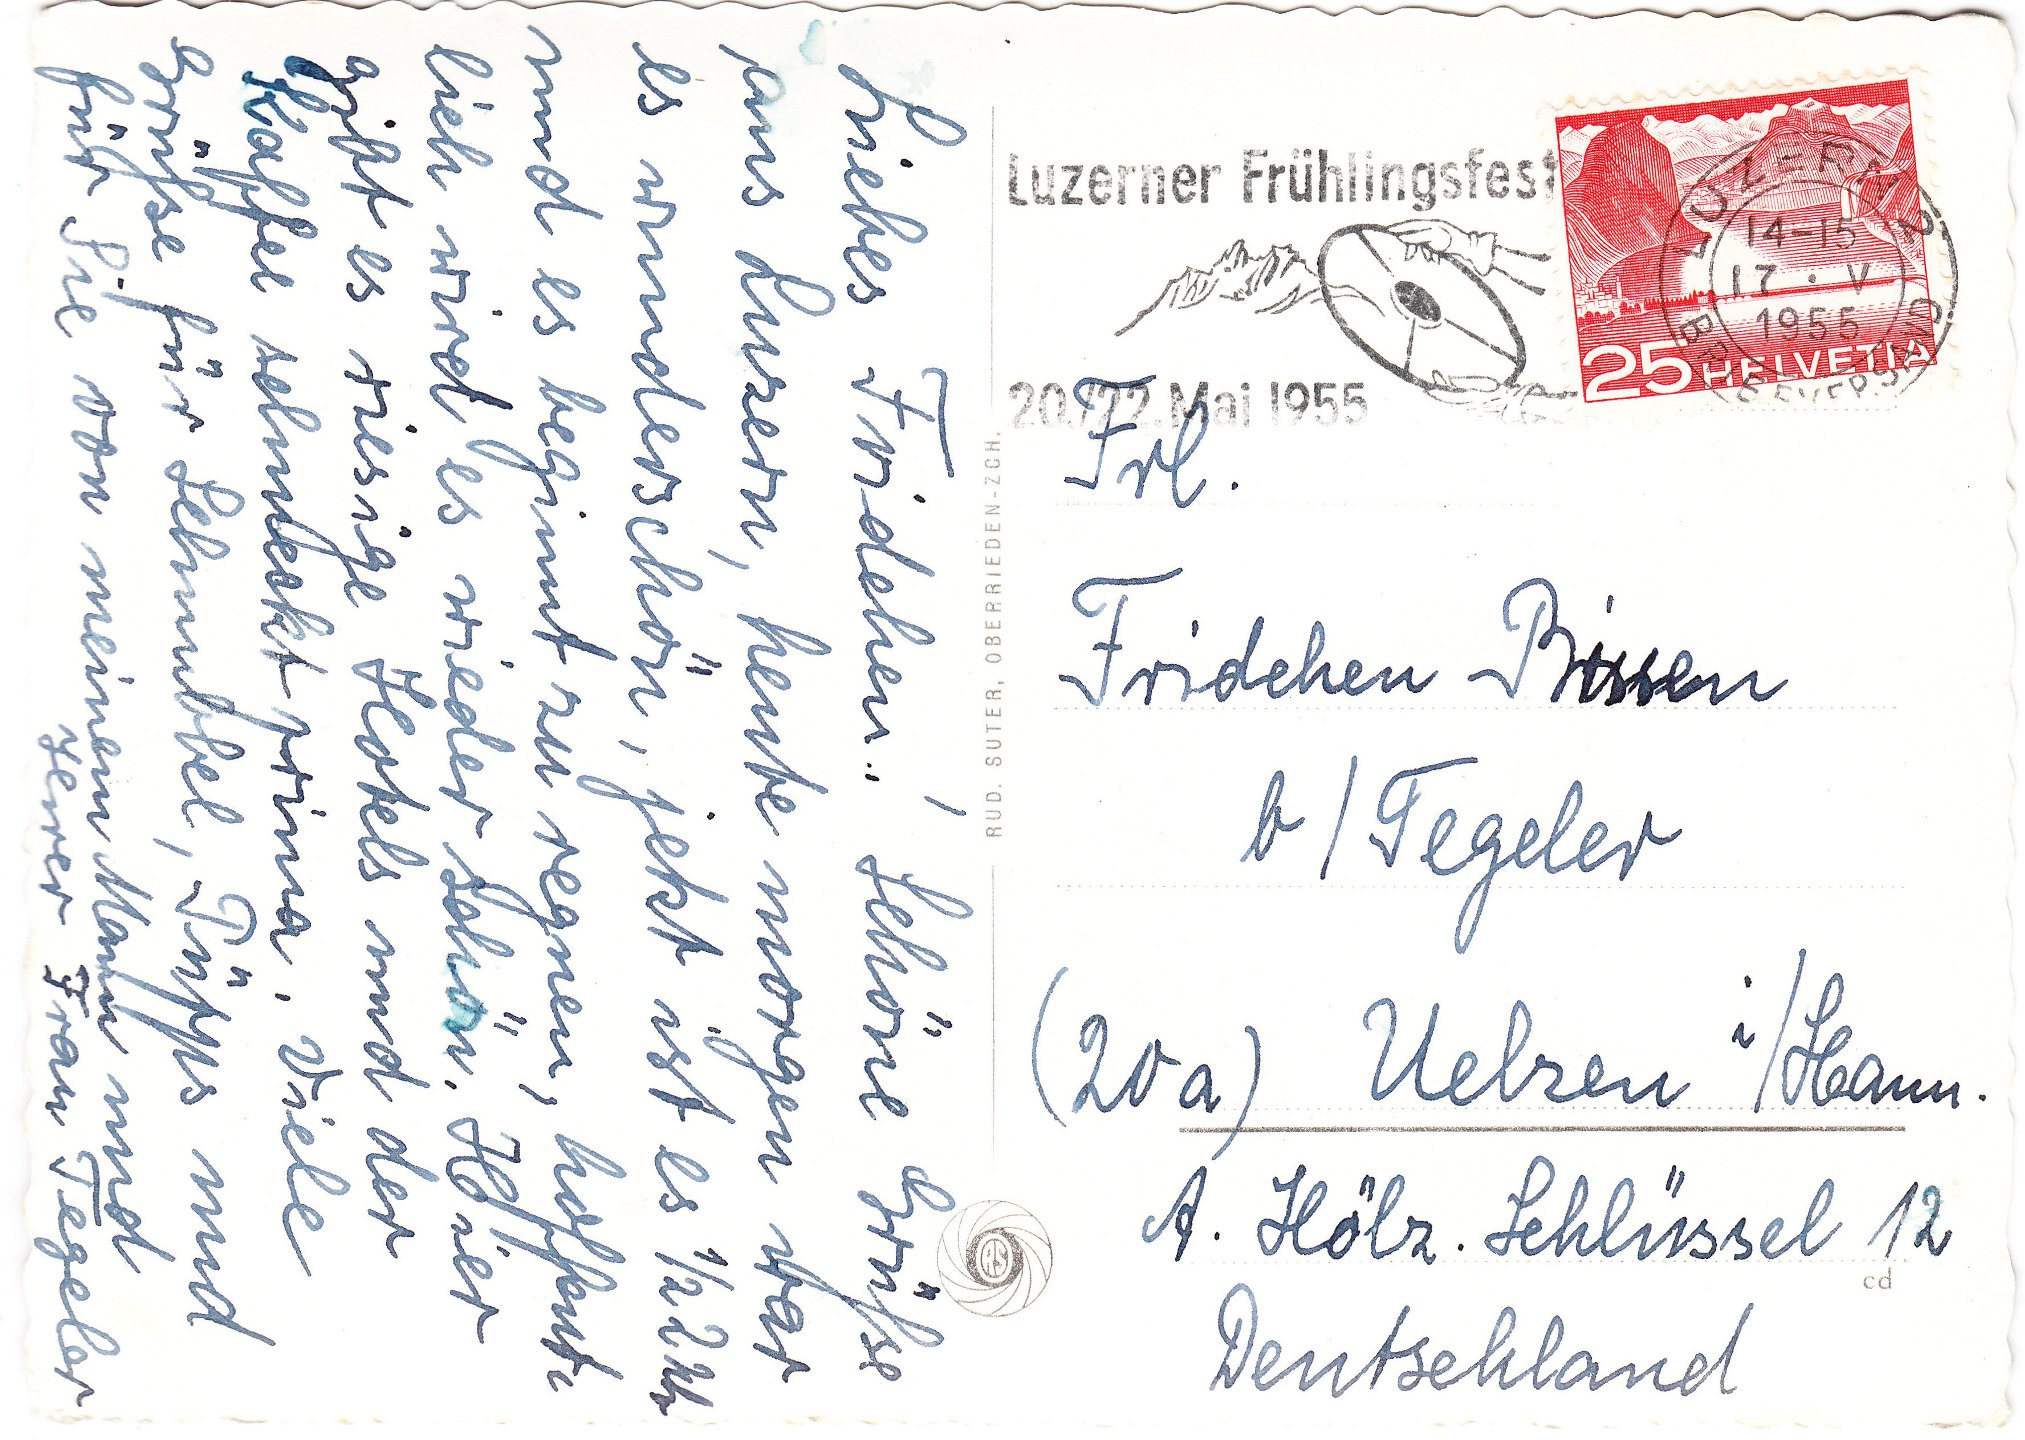 Liebes Fridchen! Schöne Grüße
aus Luzern, heute morgen war
es wunderschön, jetzt ist es 1/2 2 Uhr
und es beginnt zu regnen, hoffent-
lich wird es wieder schön. Hier
gibt es riesige Hotels und der
Kaffee schmeckt prima. Viele
Grüße für Schnubbel, Tüffs und
für Sie von meinem Mann und
Ihrer Frau Tegeler
RUD. SUTER, OBERRIEDEN-ZCH.
Luzerner Frühlingsfest
20./22. Mai 1955
LUZERN 2
14-15
17·V
1955
BRIEFVERSAND
25 HELVETIA
Frl.
Fridchen Bissen
b/Tegeler
(20a) Uelzen i/Hann.
A. Hölz. Schlüssel 12
cd
Deutschland